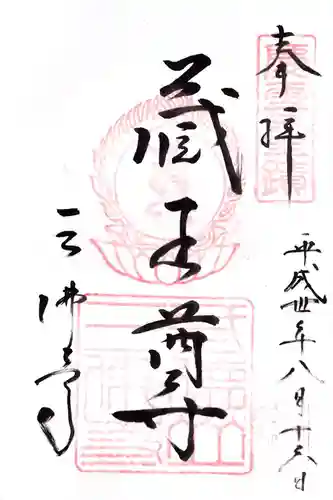 奉拝
蔵王尊
三佛寺
平成丗年八月十六日